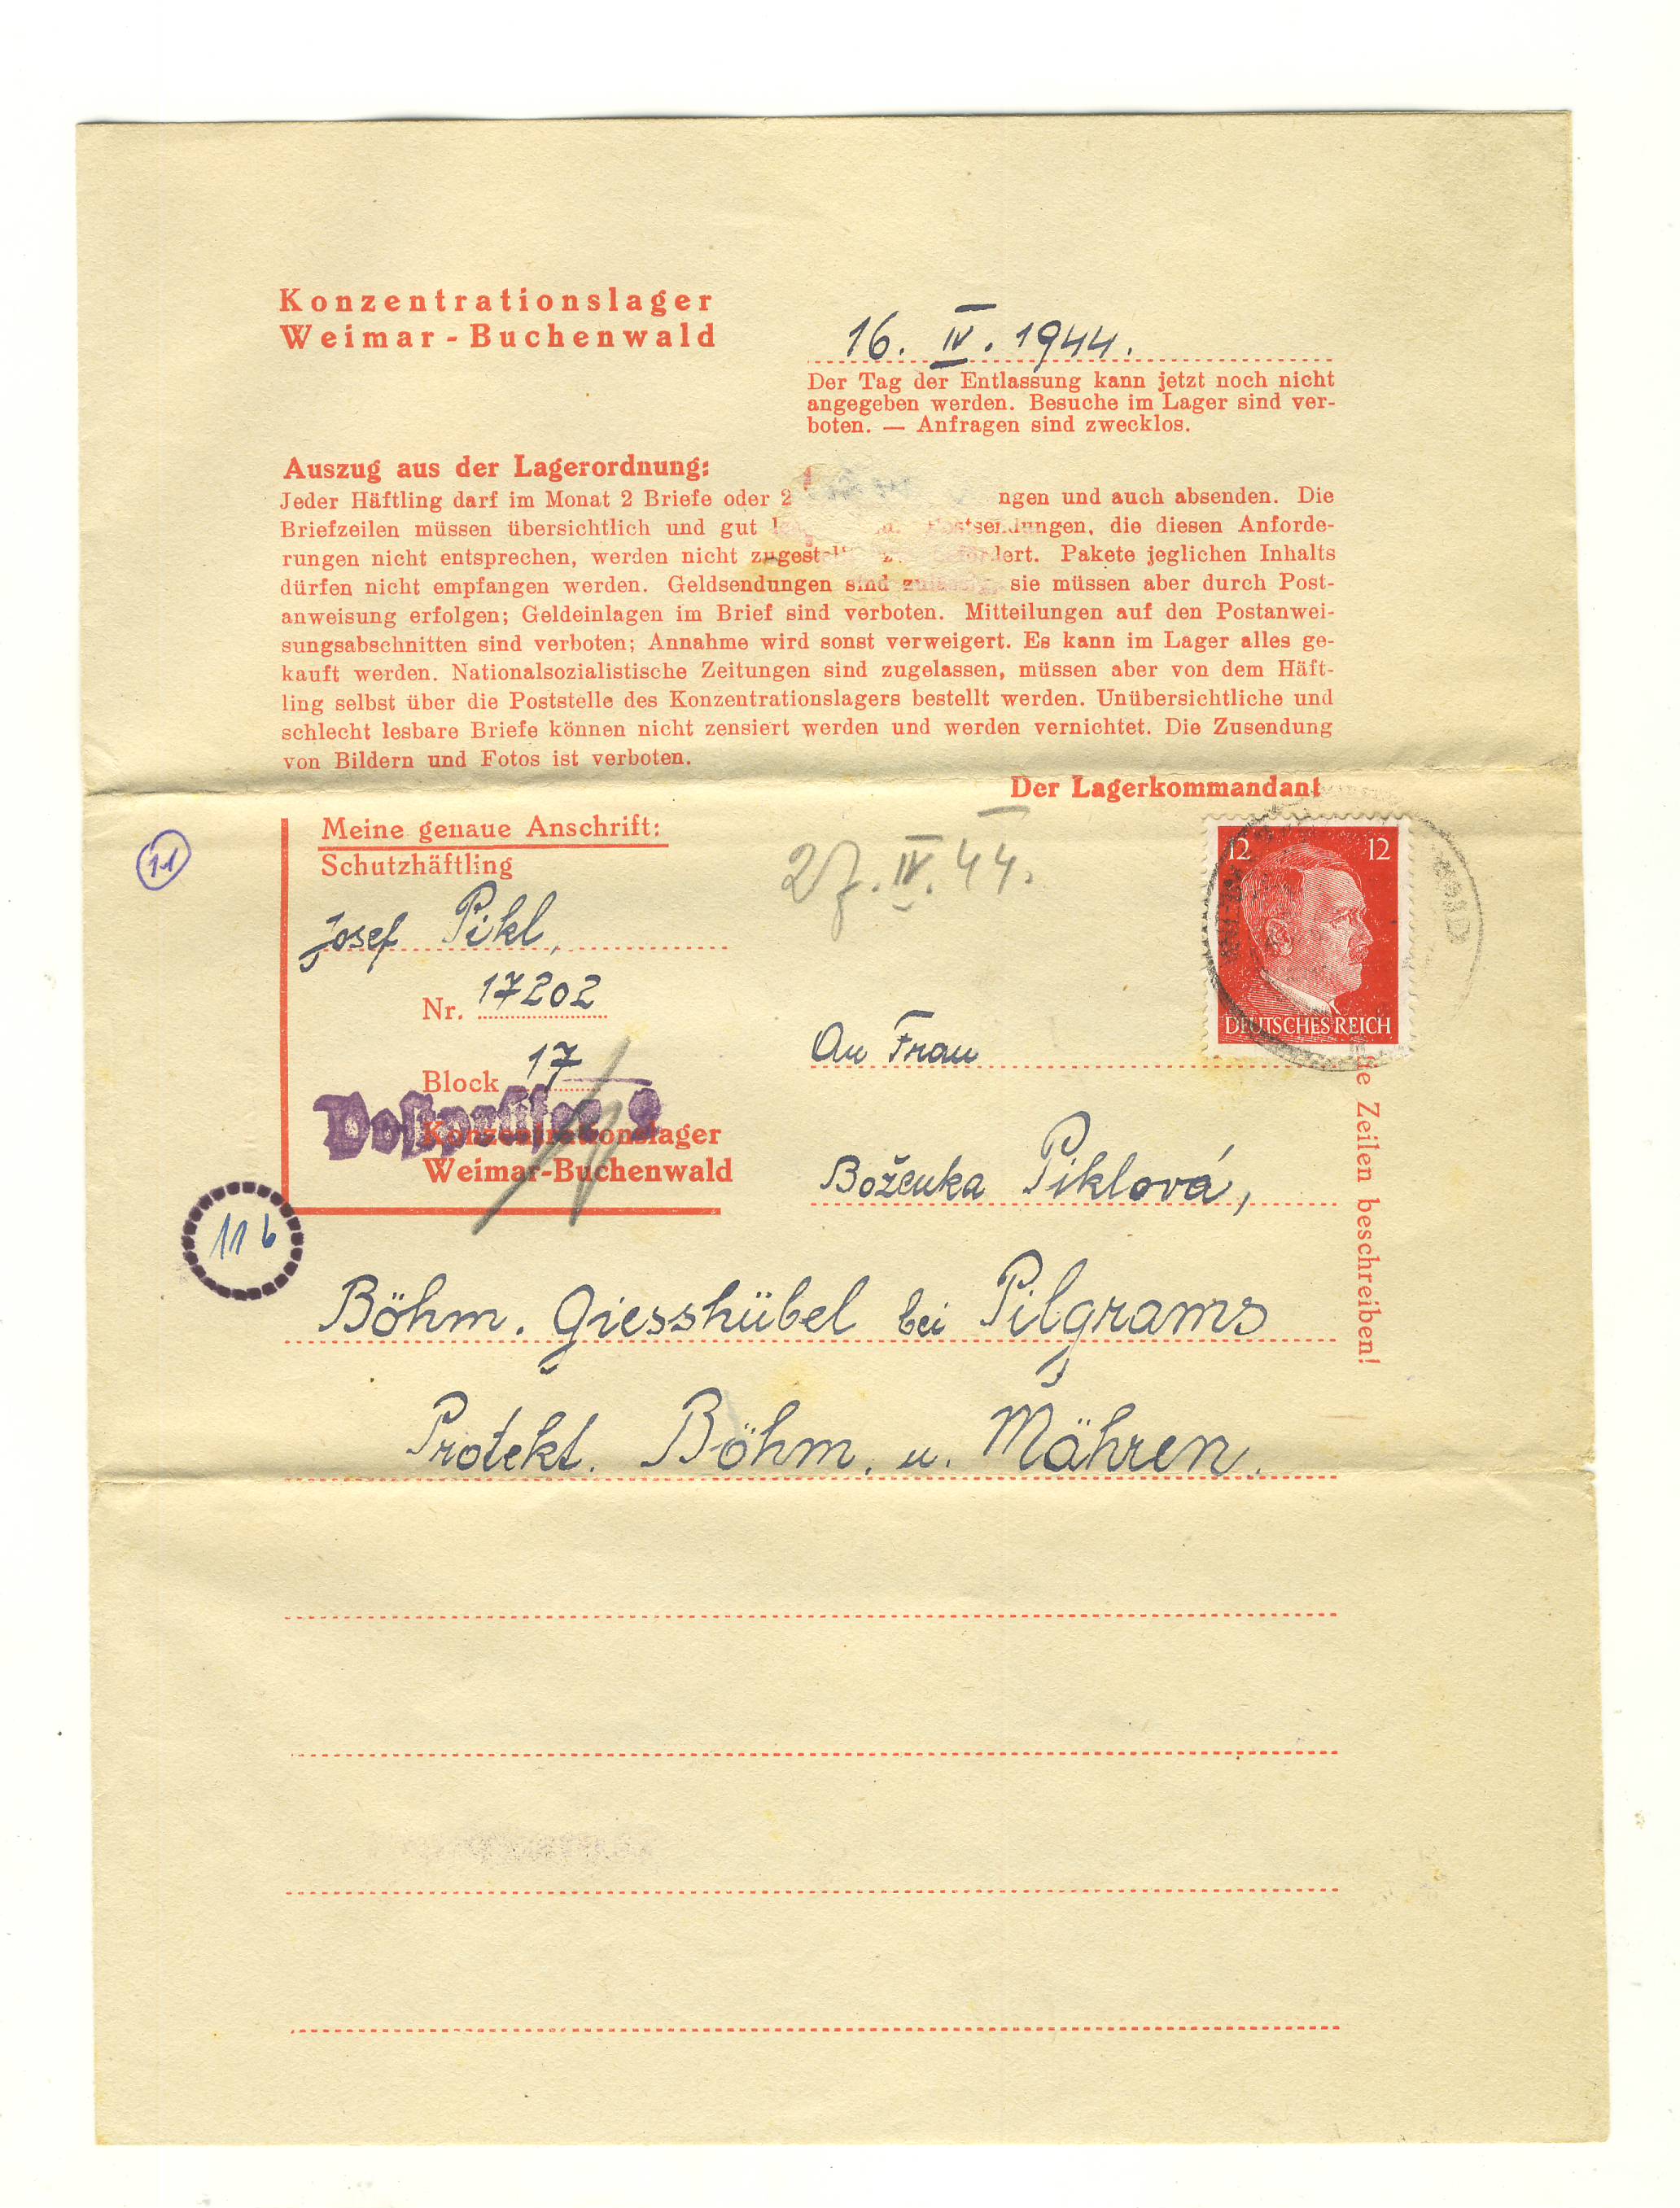 Konzentrationslager
Weimar-Buchenwald
16. IV. 1944.
Der Tag der Entlassung kann jetzt noch nicht
angegeben werden. Besuche im Lager sind ver-
boten. — Anfragen sind zwecklos.
Auszug aus der Lagerordnung:
Jeder Häftling darf im Monat 2 Briefe oder 2 ngen und auch absenden. Die
Briefzeilen müssen übersichtlich und gut die diesen Anforde-
rungen nicht entsprechen, werden nicht Pakete jeglichen Inhalts
dürfen nicht empfangen werden. Geldsendungen sind zulässig, sie müssen aber durch Post-
anweisung erfolgen; Geldeinlagen im Brief sind verboten. Mitteilungen auf den Postanwei-
sungsabschnitten sind verboten; Annahme wird sonst verweigert. Es kann im Lager alles ge-
kauft werden. Nationalsozialistische Zeitungen sind zugelassen, müssen aber von dem Häft-
ling selbst über die Poststelle des Konzentrationslagers bestellt werden. Unübersichtliche und
schlecht lesbare Briefe können nicht zensiert werden und werden vernichtet. Die Zusendung
von Bildern und Fotos ist verboten.
Der Lagerkommandant
Meine genaue Anschrift:
Schutzhäftling
11
27. IV. 44.
12 12
DEUTSCHES REICH
Josef Pikl,
Nr. 17202
An Frau
Block 17
Konzentrationslager
Weimar-Buchenwald
Boženka Piklová,
Zeilen beschreiben!
11 b
Böhm. Giesshübel bei Pilgrams
Protekt. Böhm. u. Mähren.